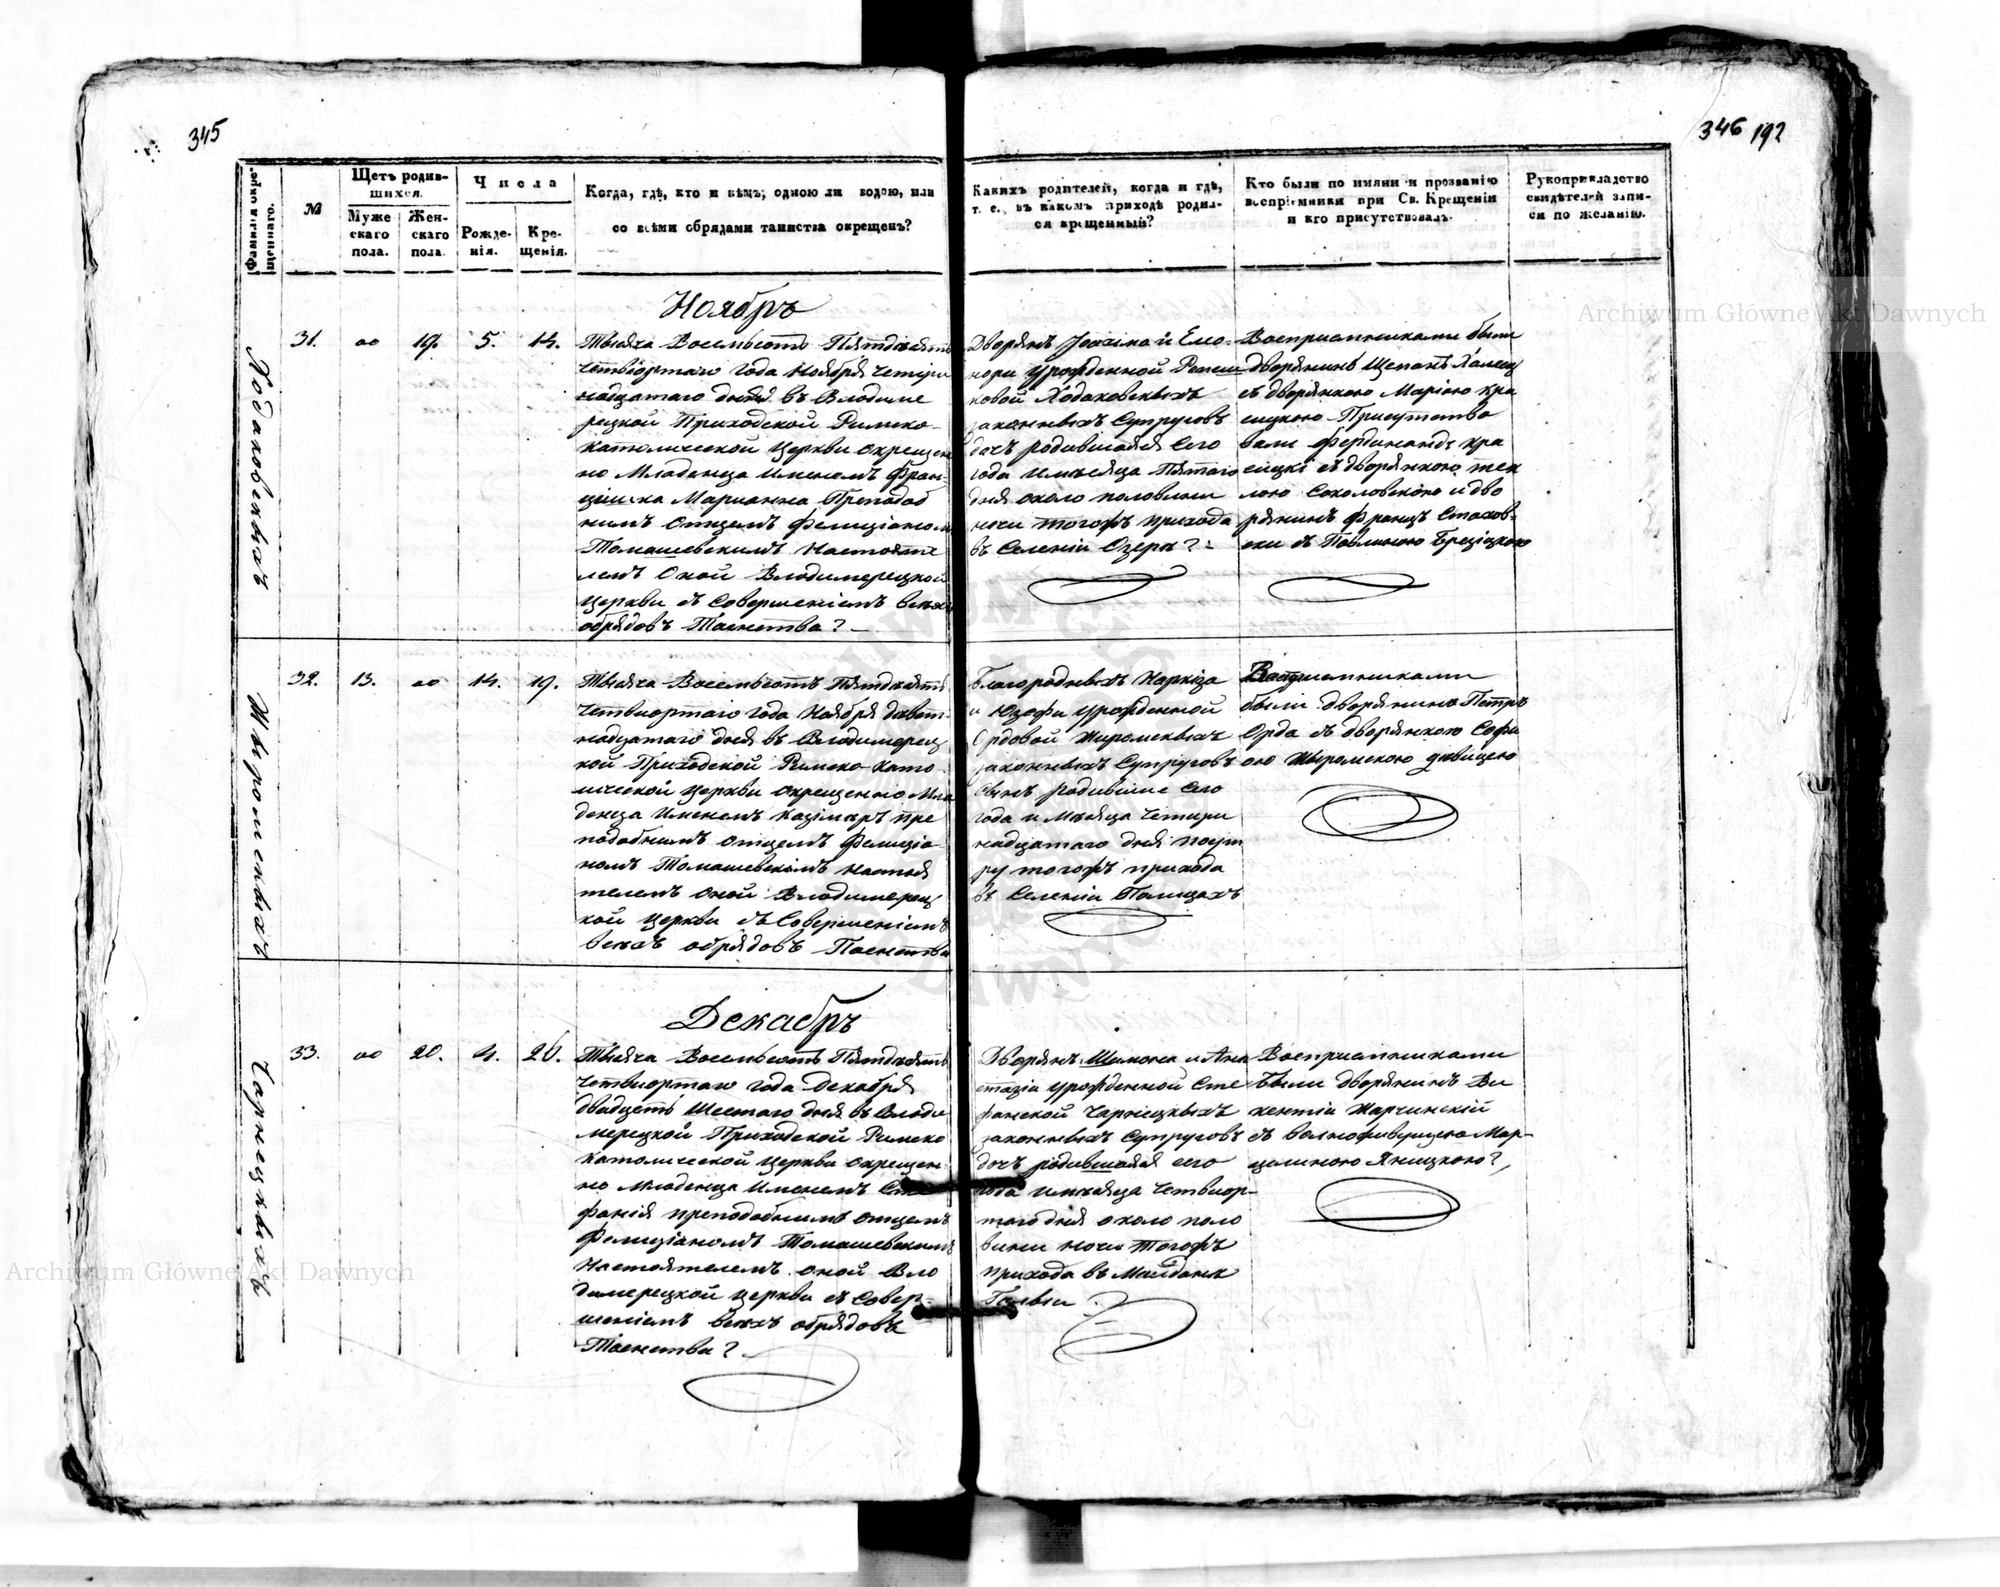 345
346 192
Фамилія окре-
щеннаго.
№
Щетъ родив-
шихся.
Муже
скаго
пола.
Жен-
скаго
пола.
Числа
Рожде-
нія.
Кре-
щенія.
Когда, гдѣ, кто и кѣмъ, одною ли водою, или
со всѣми обрядами таинства окрещенъ?
Какихъ родителей, когда и гдѣ,
т. е., въ какомъ приходѣ родил-
ся крещенный?
Кто были по имяни и прозванію
воспріемники при Св. Крещеніи
и кто присутствовалъ.
Рукоприкладство
свидѣтелей запи-
си по желанію.
Ноябръ
Ходаковскихъ
31. оо 19. 5. 14.
Тысяча Восемьсотъ Пятдесятъ
Четвіортаго года Ноября четыри
надцатаго дня въ Владиме
рецкой Приходской Римско-
католической Церкви окрещен
но Младенца Именемъ Фран-
ціиска Марианна Преподоб
нимъ Отцемъ Фелиціаномъ
Томашевскимъ Настояте
лемъ Оной Влодимерецкой
Церкви съ Совершеніемъ всехъ
обрядовъ Таенства?
Дворянъ Іоахима и Елео-
нори урожденной
ковой Ходаковскихъ
законныхъ Супруговъ
дочъ родившаяся Сего
года имѣсяца Пятаго
дня около половини
ночи тогожъ прихода
въ Селеніи Озеры?
Восприемниками были
дворянинъ Щепанъ Халец
съ дворянкою Маріою Кра
сицкою Присутство
вали Фердинандъ Кра
сицкі съ дворянкою тек
лою Соколовскою и дво
рянинъ Францъ Стахов-
ски съ Павлиною Брезіцкою
Жыромскихъ
32. 13. оо 14. 19.
Тысяча Восемьсотъ Пятдесятъ
Четвіортаго года Ноября девят
надцатаго дня въ Влодимерец
кой Приходской Римско Като
лической церкви окрещенно Мла
денца Именемъ Казіміръ пре
подобнимъ отцемъ Фелиціа-
номъ Томашевскімъ Настоя
телемъ оной Влодимерец
кой Церкви съ Совершеніемъ
всехъ обрядовъ Таенства
Благородныхъ Наркіза
и Юзефи урожденной
Ордовой Жиромскихъ
законныхъ Супруговъ
Сынъ родившіе Сего
года и Мѣсяца Четыри
надцатаго дня поут
ру тогожъ прихода
въ Селеніи Полицахъ
Восприемниками
были дворянинъ Петръ
Орда съ дворянкою Софи
ою Жыромскою дѣвицею
Декабръ
Чарнецкихъ
33. оо 20. 4. 26.
Тысяча Восемьсотъ Пятдесятъ
Четвіортаго года Декабря
двадцеть Шестаго дня въ Влоди
мерецкой Приходской Римско
Католической Церкви окрещен-
но Младенца Именемъ Сте
фанія преподобнимъ отцемъ
Фелиціаномъ Томашевскимъ
Настоятелемъ оной Вло
димерецкой Церкви съ Совер-
шеніемъ всехъ обрядовъ
Таенства?
Дворянъ Шимона и Ана
стазіи урожденной Сте
фанской Чарнецкихъ
законныхъ Супруговъ
дочъ родившаяся сего
года имѣсяца Четвіор-
таго дня около поло
вини ночи тогожъ
прихода въ Майданѣ
Восприемниками
Были дворянинъ Ви
кентіи Марчинскій
съ волноживущею Мар-
целиною Яницкою?
Archiwum Główne Akt Dawnych
Archiwum Główne Akt Dawnych